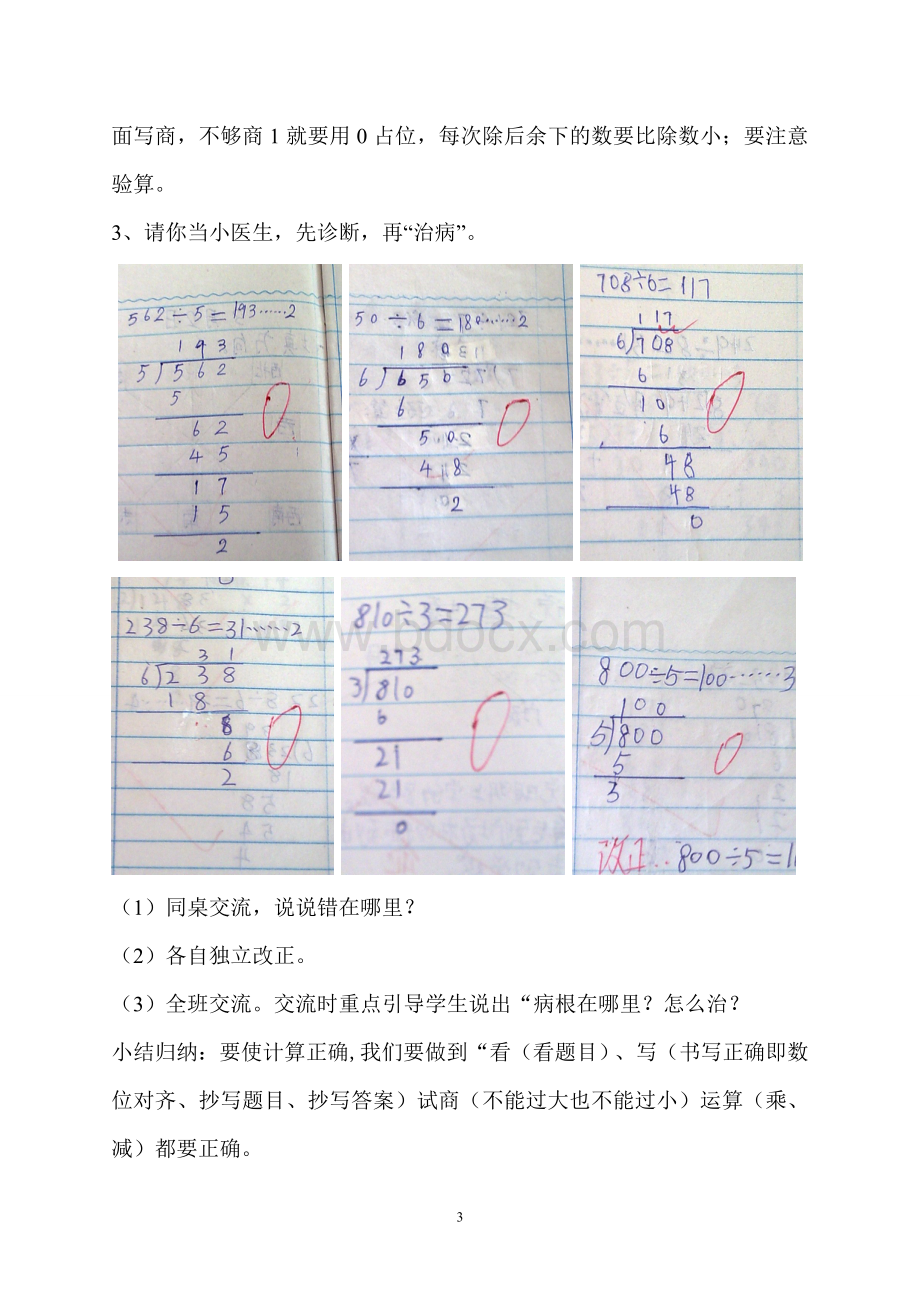 面写商，不够商1就要用0占位，每次除后余下的数要比除数小；要注意
验算。
3、请你当小医生，先诊断，再“治病”。
562÷5=193……2
193
5 562
5
62
45
17
15
2
50÷6=180……2
180
6 650
6
50
48
2
708÷6=117
117
6 708
6
10
6
48
48
0
238÷6=31……2
31
6 238
18
8
6
2
810÷3=273
273
3 810
6
21
21
0
800÷5=100……3
100
5 800
5
3
改正..800÷5=1
www.bdocx.com
（1）同桌交流，说说错在哪里？
（2）各自独立改正。
（3）全班交流。交流时重点引导学生说出“病根在哪里？怎么治？
小结归纳：要使计算正确,我们要做到“看（看题目）、写（书写正确即数
位对齐、抄写题目、抄写答案）试商（不能过大也不能过小）运算（乘、
减）都要正确。
3